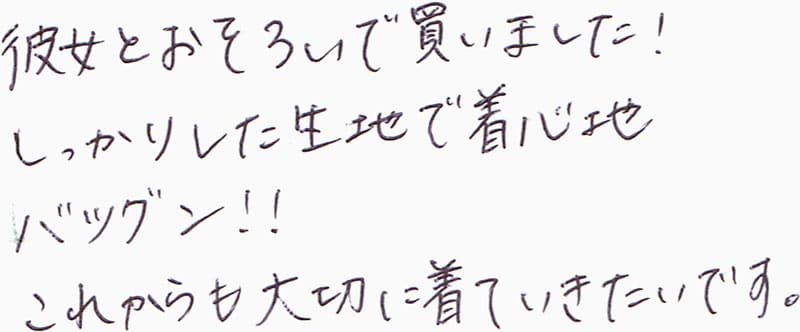 彼女とおそろいで買いました!
しっかりした生地で着心地
バツグン!!
これからも大切に着ていきたいです。